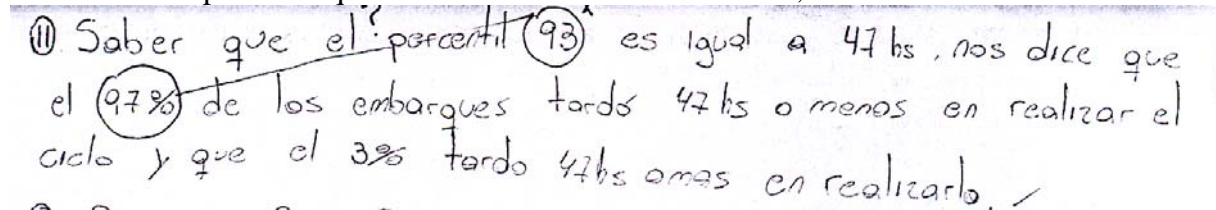 ⑪ Saber que el ? percentil 93 es igual a 47 hs, nos dice que
el 97% de los embarques tardó 47 hs o menos en realizar el
ciclo y que el 3% tardo 47hs o mas en realizarlo. ✓